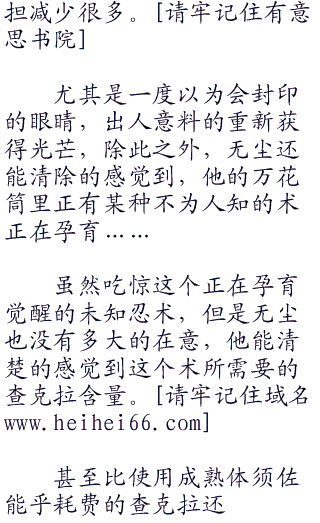 担减少很多。[请牢记住有意
思书院]
尤其是一度以为会封印
的眼睛，出人意料的重新获
得光芒，除此之外，无尘还
能清除的感觉到，他的万花
筒里正有某种不为人知的术
正在孕育……
虽然吃惊这个正在孕育
觉醒的未知忍术，但是无尘
也没有多大的在意，他能清
楚的感觉到这个术所需要的
查克拉含量。[请牢记住域名
www.heihei66.com]
甚至比使用成熟体须佐
能乎耗费的查克拉还